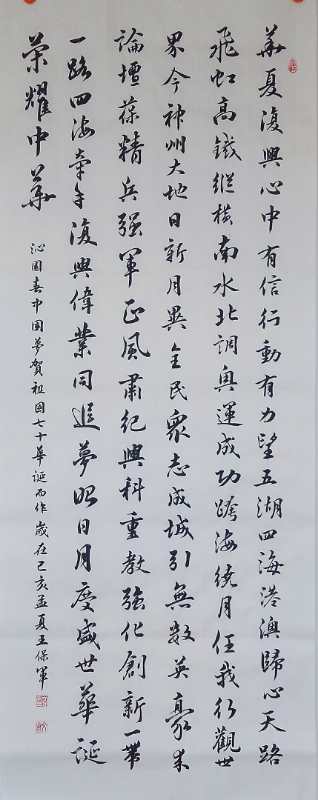 華夏復興心中有信行動有力望五湖四海港澳歸心天路
飛虹高鐵縱橫南水北調奧運成功跨海繞月任我行觀世
界今神州大地日新月異全民眾志成城引無數英豪来
論壇葆精兵强軍正風肅紀興科重教强化創新一帶
一路四海牽手復興偉業同追夢昭日月慶盛世華誕
榮耀中華
沁園春中國夢賀祖國七十華誕而作歲在己亥孟夏王保軍